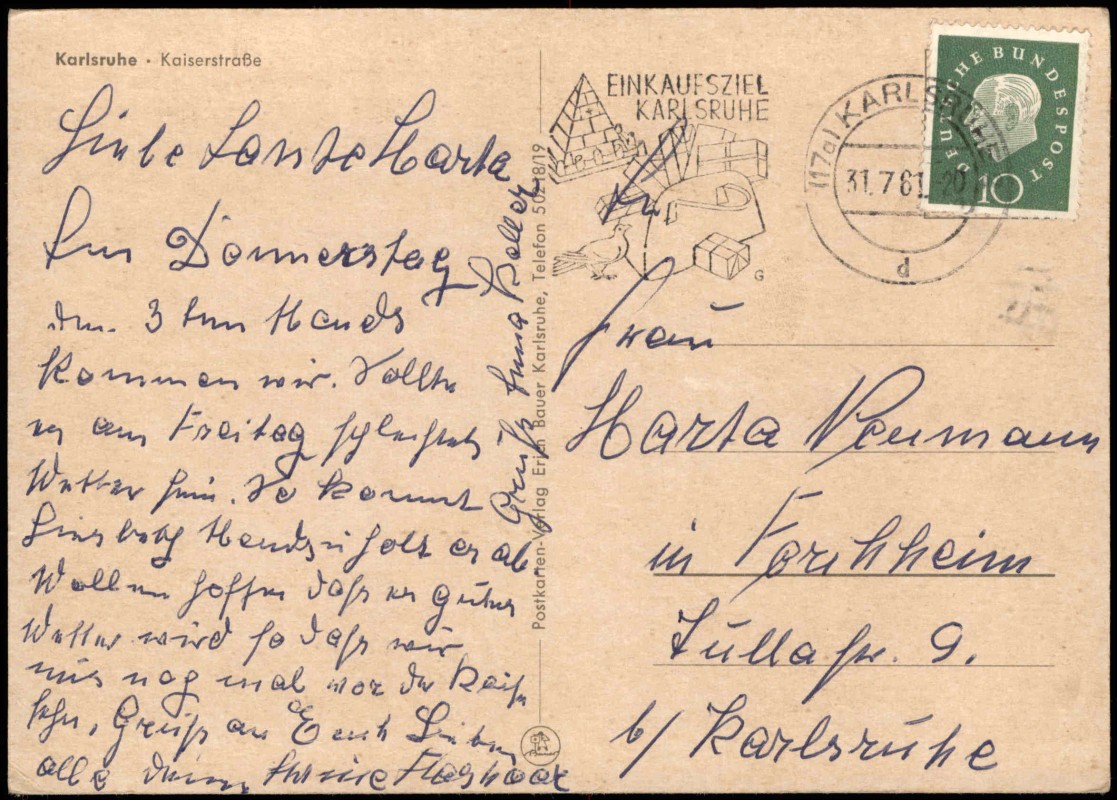 Karlsruhe · Kaiserstraße
Liebe Tante Marta
Am Donnerstag
den 3 ten
kommen wir. Sollte
es am Freitag schlechtes
Wetter sein. So kommt
holt es ab.
Wollen hoffen daß es gutes
Wetter wird so daß wir
uns nog mal vor der Reise
sehn, Gruß an Euch Lieben
alle deine
Grüße Anna
Postkarten-Verlag Erich Bauer Karlsruhe, Telefon 50218/19
EINKAUFSZIEL
KARLSRUHE
G
(17a) KARLSRUHE
31.7.61.-20
d
DEUTSCHE BUNDESPOST
10
An
Frau
Marta Neumann
in Forchheim
Tullastr. 9.
b/ Karlsruhe